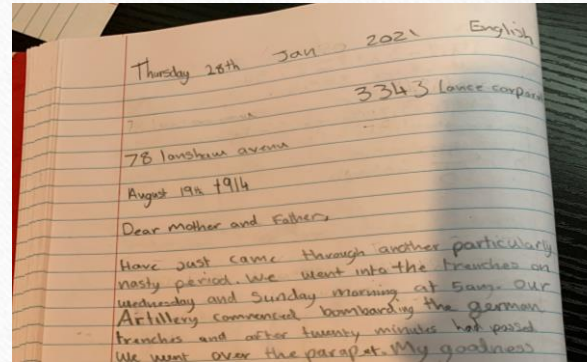 Thursday 28th Jan 2021 English
3343 lance corpora
78 lansham avenu
August 19th 1914
Dear mother and Father,
Have Just came through another particularly
nasty period. We went into the trenches on
wednesday and Sunday morning at 5am. Our
Artillery commenced bombarding the german
trenches and after twenty minutes had passed
We went over the parapet. My goodness